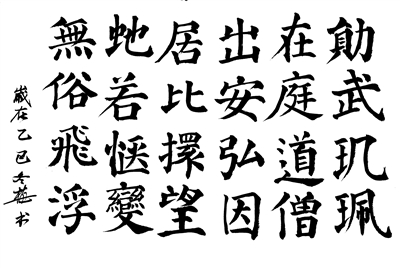 勛武玑珮
在庭道僧
出安弘因
居比擇望
虵若愜變
無俗飛浮
歲在乙巳冬燕书